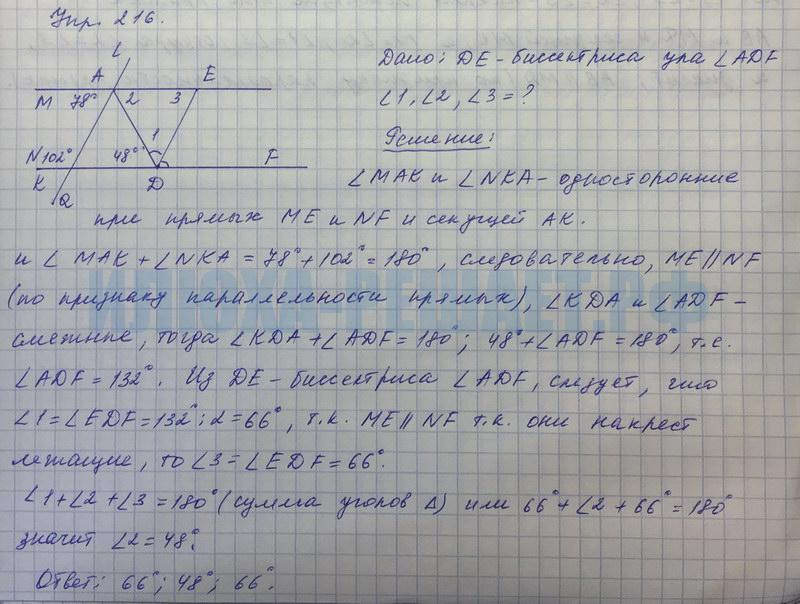 Упр. 216.
L
A
E
M
78°
2
3
1
N 102°
48°
F
K
Q
D
Дано: DE - биссектриса угла ∠ADF
∠1, ∠2, ∠3 = ?
Решение:
∠MAK и ∠NKA - односторонние
при прямых ME и NF и секущей AK.
и ∠ MAK + ∠NKA = 78° + 102° = 180°, следовательно, ME || NF
(по признаку параллельности прямых), ∠KDA и ∠ADF -
смежные, тогда ∠KDA + ∠ADF = 180°; 48° + ∠ADF = 180°, т.е.
∠ADF = 132°. Из DE - биссектриса ∠ADF, следует, что
∠1 = ∠EDF = 132° : 2 = 66°, т.к. ME || NF т.к. они накрест
лежащие, то ∠3 = ∠EDF = 66°.
∠1 + ∠2 + ∠3 = 180° (сумма углов Δ) или 66° + ∠2 + 66° = 180°
значит ∠2 = 48°.
Ответ: 66°; 48°; 66°.